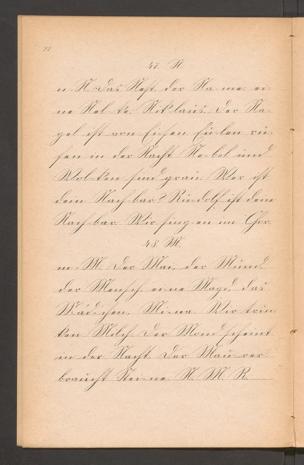 47. N.
n N Das Nest, der Na-me ei-
ne Nel-ke. Niklaus. Der Na-
gel ist von Eisen. Eu-len ru-
fen in der Nacht. Ne-bel und
Wol-ken sind grau. Wer ist
dein Nach-bar? Rudolf ist dein
Nach-bar. Wir sing-en im Chor.
48. M.
m M Der Mai, der Mund
der Mensch ei-ne Magd, das
Mäd-chen. Mi-na. Wir trin-
ken Milch. Der Mond scheint
in der Nacht. Der Mau-rer
braucht Stei-ne. N. M. R.